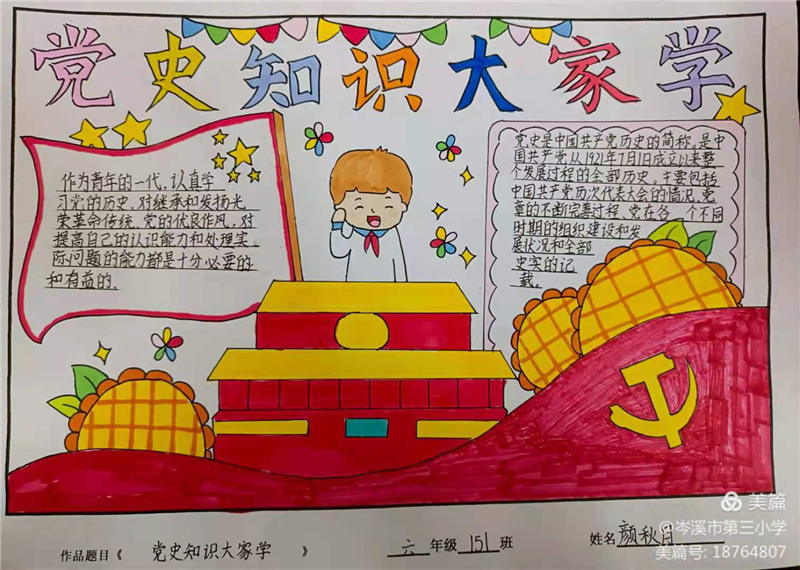 党史知识大家学
作为青年的一代,认真学
习党的历史,对继承和发扬光
荣革命传统,党的优良作风,对
提高自己的认识能力和处理实
际问题的能力都是十分必要的
和有益的。
党史是中国共产党历史的简称。是中
国共产党从1921年7月1日成立以来整
个发展过程的全部历史。主要包括
中国共产党历次代表大会的情况,党
章的不断完善过程,党在各个不同
时期的组织建设和发
展状况和全部
史实的记
载。
美篇
@岑溪市第三小学
美篇号: 18764807
作品题目《 党史知识大家学 》 六 年级 151 班 姓名 颜秋月